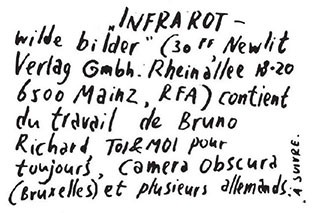 "INFRAROT –
wilde bilder" (30 FF, Newlit
Verlag Gmbh. Rheinallee 18-20
6500 Mainz, RFA) contient
du travail de Bruno
Richard TOI&MOI pour
toujours, Camera Obscura
(Bruxelles) et plusieurs allemands.
A SUIVRE.